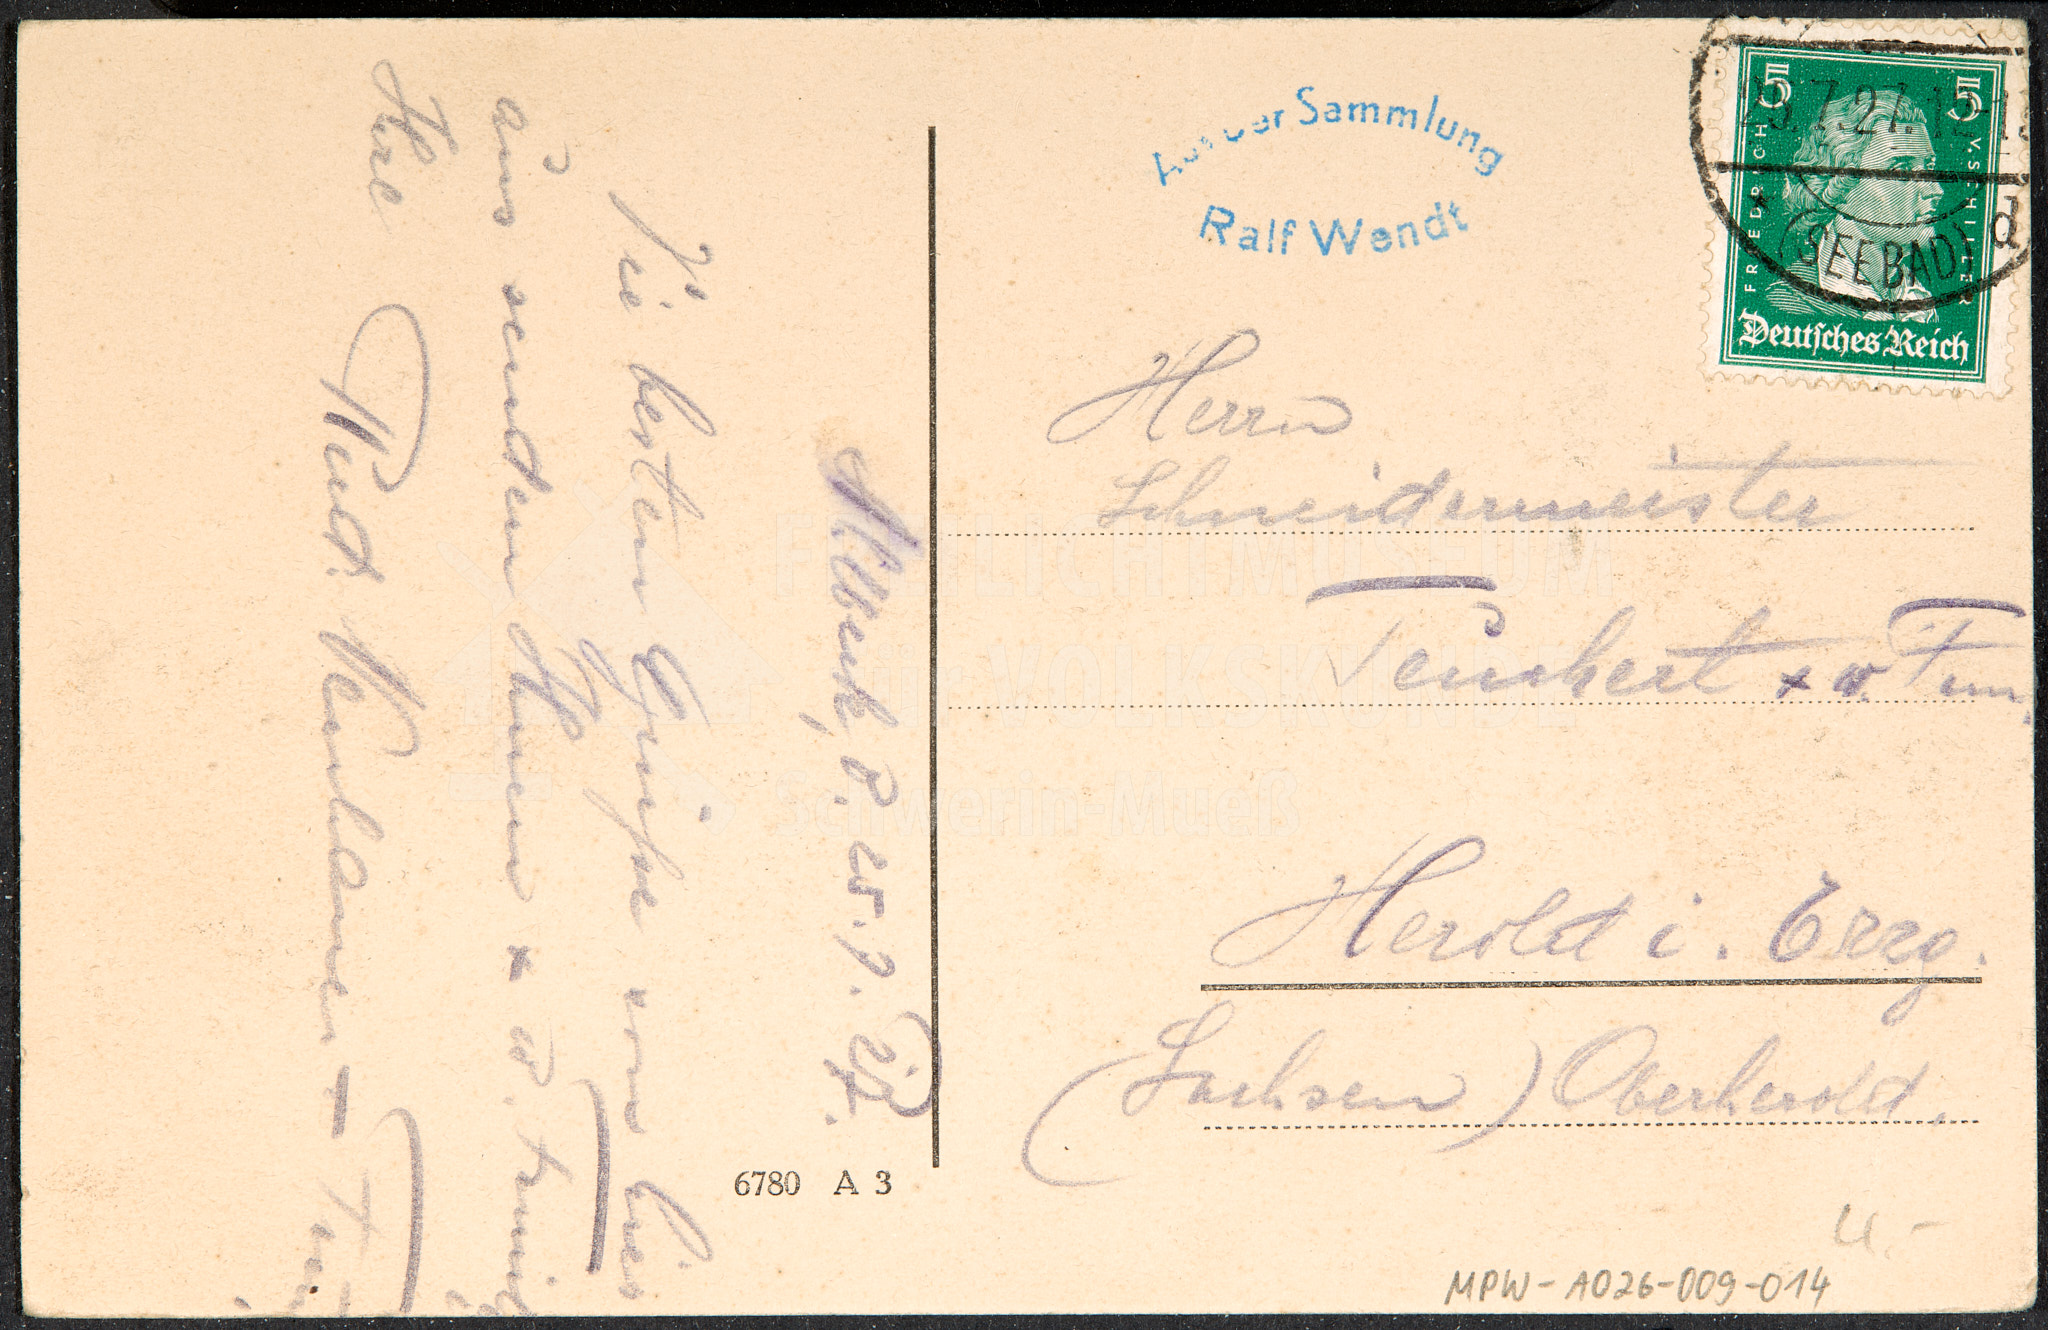 Aus der Sammlung
Ralf Wendt
5 5
FRIEDRICH V. SCHILLER
Deutsches Reich
.7.27.12-1
(SEEBAD) d
Herrn
Schneidermeister
Teuchert + w. Fam.
Herold i. Erzg.
(Sachsen) Oberherold.
25.7.27.
Die besten Grüße von hier
aus senden Ihnen + w. Famil
Ihre
Rud. +
6780 A 3
4.-
MPW-A026-009-014
FREILICHTMUSEUM
für VOLKSKUNDE
Schwerin-Mueß